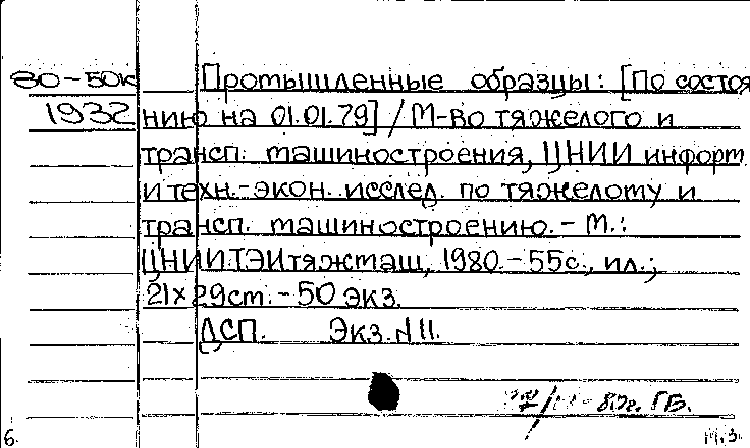 80-50к Промышленные образцы: [По состоя
1932 нию на 01.01.79] / М-во тяжелого и
трансп. машиностроения, ЦНИИ информ.
и техн.-экон. исслед. по тяжелому и
трансп. машиностроению. - М.:
ЦНИИТЭИтяжмаш, 1980. - 55с., ил.;
21×29см. - 50 экз.
ДСП. Экз. N 11.
80г. ГБ.
6. М.З.